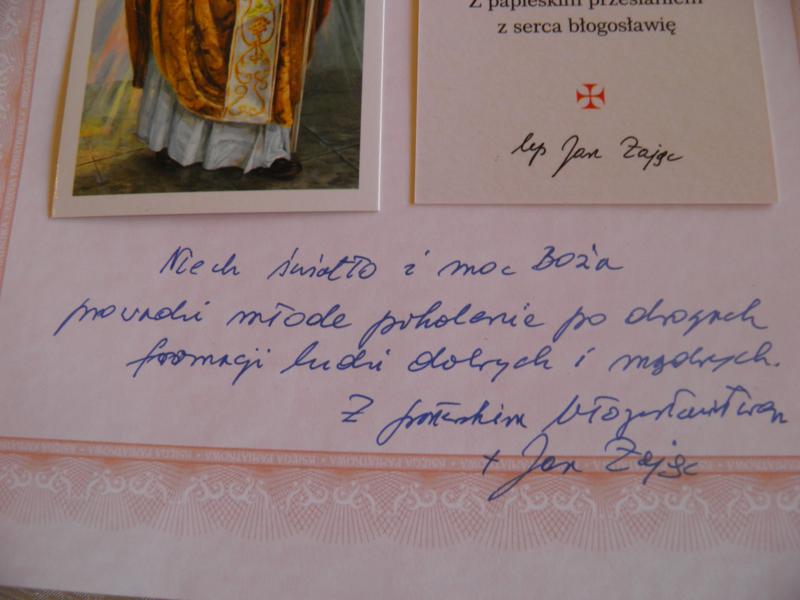 Z papieskim przesłaniem
z serca błogosławię
bp Jan Zając
Niech światło i moc Boża
prowadzi młode pokolenie po drogach
formacji ludzi dobrych i mądrych.
Z pasterskim błogosławieństwem
+ Jan Zając
KSIĘGA PAMIĄTKOWA